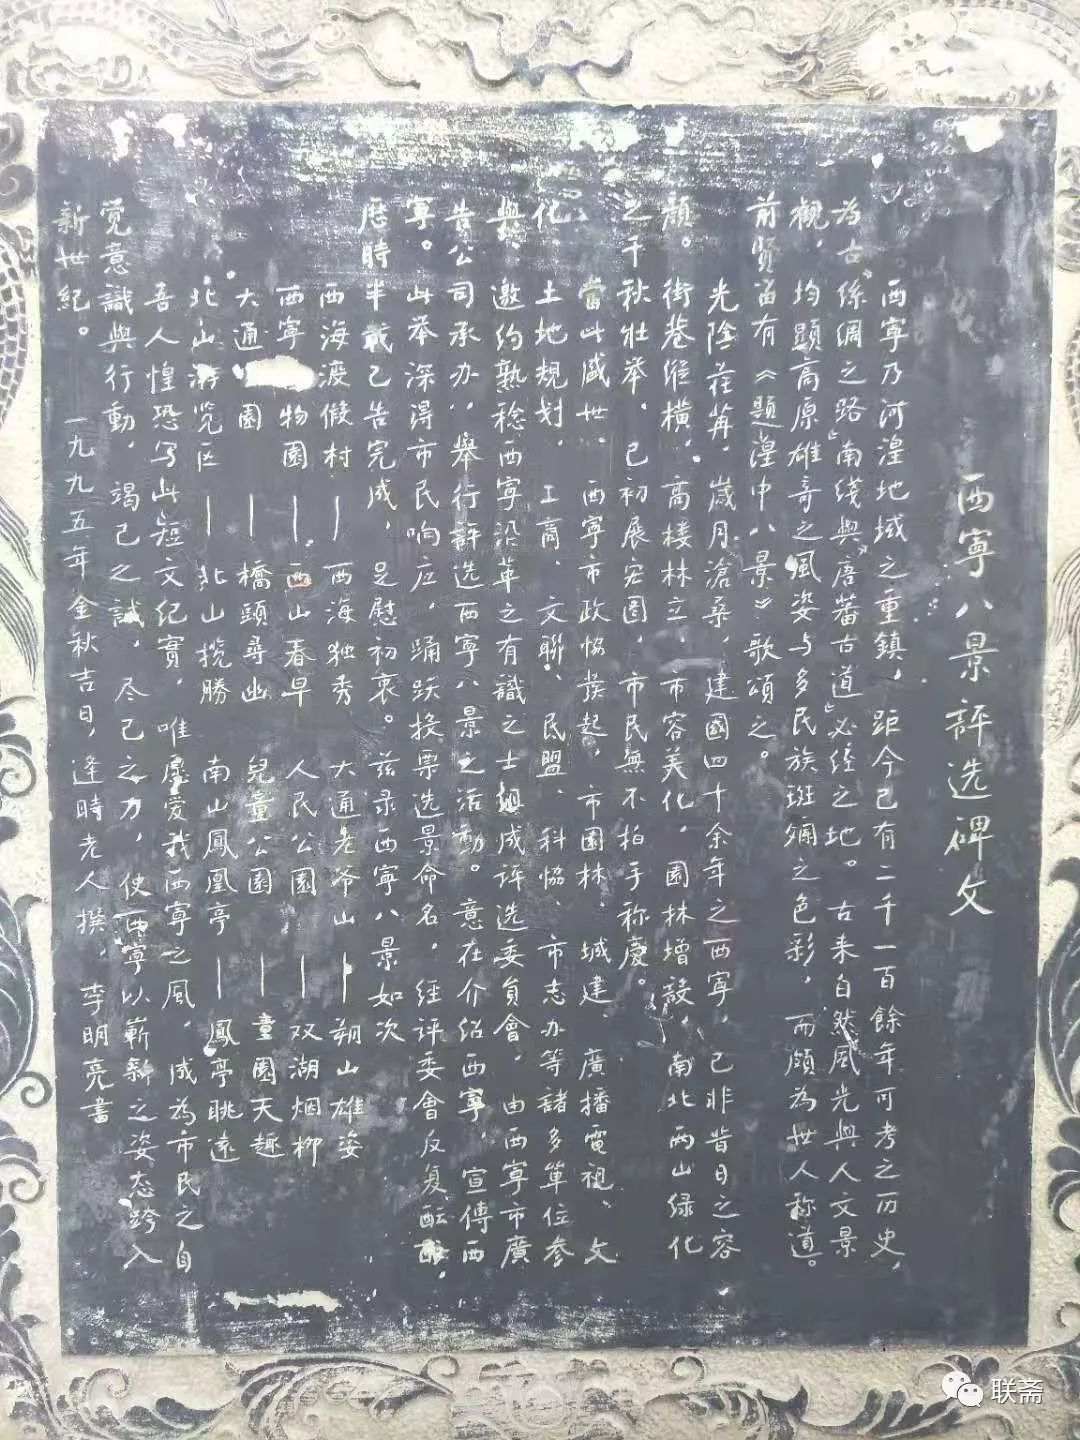 西寧八景評选碑文
西寧乃河湟地域之重鎮，距今已有二千一百餘年可考之历史，
為古“絲绸之路”南线與“唐蕃古道”必经之地。古来自然風光與人文景
觀，均顯高原雄奇之風姿与多民族斑斓之色彩，而頗為世人称道。
前贤留有《題湟中八景》歌頌之。
光陰荏苒，歲月滄桑，建國四十余年之西寧，已非昔日之容
顔。街巷縱橫，高楼林立，市容美化，園林增設，南北两山绿化
之千秋壮举，已初展宏图，市民無不拍手称慶。
當此盛世，西寧市政協發起，市園林、城建、廣播電視、文
化、土地規划、工商、文聯、民盟、科協、市志办等諸多單位参
與，邀约熟稔西寧沿革之有識之士組成评选委員會，由西寧市廣
告公司承办，舉行評选西寧八景之活動。意在介绍西寧，宣傳西
寧。此举深得市民响应，踊跃投票选景命名，经评委會反复酝酿，
歷時半載已告完成，足慰初衷。兹录西寧八景如次
西海渡假村——西海独秀 大通老爷山——朔山雄姿
西寧物園——西山春早 人民公園——双湖烟柳
大通園——橋頭尋幽 兒童公園——童園天趣
北山游览区——北山揽勝 南山鳳凰亭——鳳亭眺遠
吾人惶恐写此短文纪實，唯愿爱我西寧之風，成為市民之自
觉意識與行動，竭己之誠，尽己之力，使西寧以嶄新之姿态跨入
新世紀。
一九九五年金秋吉日，逢時老人撰，李明亮書
联斋